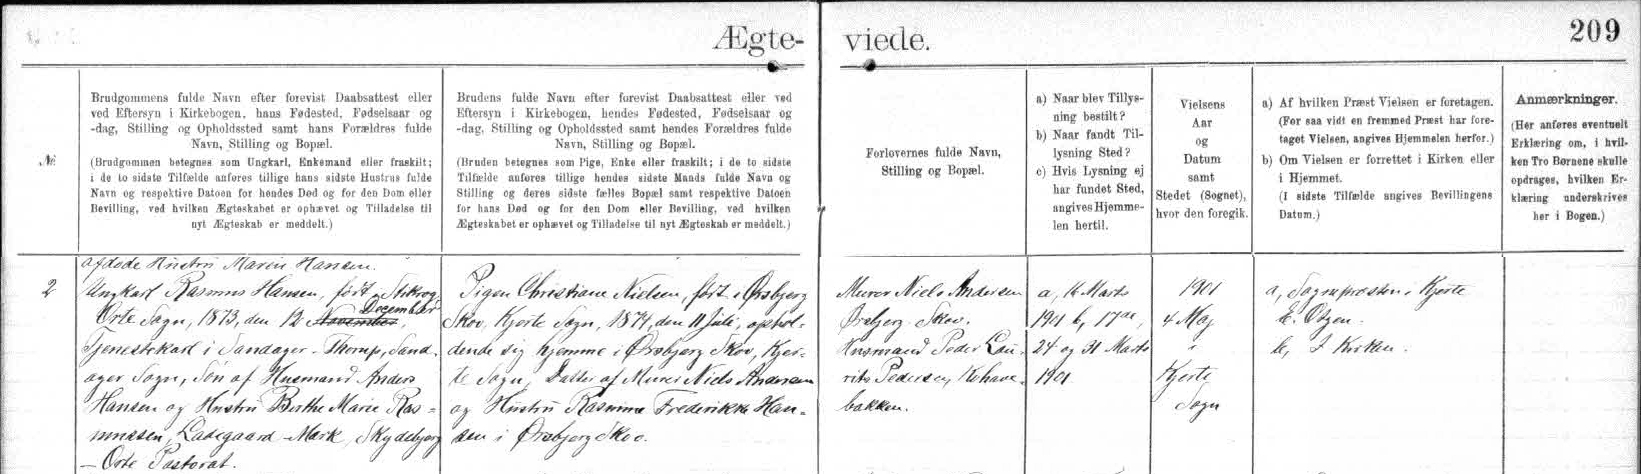 Ægte-
viede.
209
№
Brudgommens fulde Navn efter forevist Daabsattest eller
ved Eftersyn i Kirkebogen, hans Fødested, Fødselsaar og
-dag, Stilling og Opholdssted samt hans Forældres fulde
Navn, Stilling og Bopæl.
(Brudgommen betegnes som Ungkarl, Enkemand eller fraskilt;
i de to sidste Tilfælde anføres tillige hans sidste Hustrus fulde
Navn og respektive Datoen for hendes Død og for den Dom eller
Bevilling, ved hvilken Ægteskabet er ophævet og Tilladelse til
nyt Ægteskab er meddelt.)
Brudens fulde Navn efter forevist Daabsattest eller ved
Eftersyn i Kirkebogen, hendes Fødested, Fødselsaar og
-dag, Stilling og Opholdssted samt hendes Forældres fulde
Navn, Stilling og Bopæl.
(Bruden betegnes som Pige, Enke eller fraskilt; i de to sidste
Tilfælde anføres tillige hendes sidste Mands fulde Navn og
Stilling og deres sidste fælles Bopæl samt respektive Datoen
for hans Død og for den Dom eller Bevilling, ved hvilken
Ægteskabet er ophævet og Tilladelse til nyt Ægteskab er meddelt.)
Forlovernes fulde Navn,
Stilling og Bopæl.
a) Naar blev Tillys-
ning bestilt?
b) Naar fandt Til-
lysning Sted?
c) Hvis Lysning ej
har fundet Sted,
angives Hjemme-
len hertil.
Vielsens
Aar
og
Datum
samt
Stedet (Sognet),
hvor den foregik.
a) Af hvilken Præst Vielsen er foretagen.
(For saa vidt en fremmed Præst har fore-
taget Vielsen, angives Hjemmelen herfor.)
b) Om Vielsen er forrettet i Kirken eller
i Hjemmet.
(I sidste Tilfælde angives Bevillingens
Datum.)
Anmærkninger.
(Her anføres eventuelt
Erklæring om, i hvil-
ken Tro Børnene skulle
opdrages, hvilken Er-
klæring underskrives
her i Bogen.)
afdøde Hustru Maren Hansen.
2
Ungkarl Rasmus Hansen, født i Stikrog,
December
Orte Sogn, 1873, den 12 November,
Tjenestekarl i Sandager-Thorup, Sand-
ager Sogn, Søn af Husmand Anders
Hansen og Hustru Berthe Marie Ras-
mussen, Ladegaard-Mark, Skydebjerg
- Orte Pastorat.
Pigen Christiane Nielsen, født i Ørsbjerg
Skov, Kjerte Sogn, 1874, den 11 Juli, ophol-
dende sig hjemme i Ørsbjerg Skov, Kjer-
te Sogn, Datter af Murer Niels Andersen
og Hustru Rasmine Frederikke Han-
sen i Ørsbjerg Skov.
Murer Niels Andersen
Ørsbjerg Skov.
Husmand Peder Lau-
rits Pedersen,
bakken.
a, Marts
1901 b, 17de,
24 og 31 Marts
1901
1901
4 Maj
i
Kjerte
Sogn
a, Sognepræsten i Kjerte
b, I Kirken.